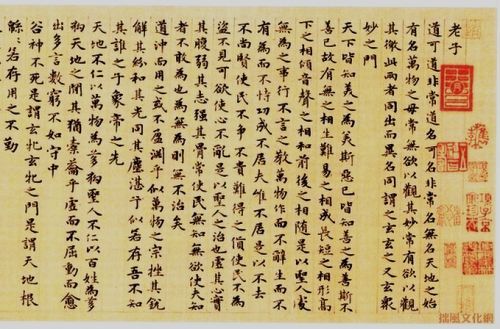 老子
道可道非常道名可名非常名無名天地之始
有名萬物之母常無欲以觀其妙常有欲以觀
其徼此兩者同出而異名同謂之玄玄之又玄衆
妙之門
天下皆知美之為美斯惡已皆知善之為善斯不
善已故有無之相生難易之相成長短之相形高
下之相傾音聲之相和前後之相隨是以聖人處
無為之事行不言之教萬物作而不辭生而不
有為而不恃功成不居夫惟不居是以不去
不尚賢使民不爭不貴難得之貨使民不為
盜不見可欲使心不亂是以聖人之治也虛其心實
其腹弱其志強其骨常使民無知無欲使夫知
者不敢為也為無為則無不治矣
道沖而用之或不盈淵乎似萬物之宗挫其銳
解其紛和其光同其塵湛乎似若存吾不知
其誰之子象帝之先
天地不仁以萬物為芻狗聖人不仁以百姓為芻
狗天地之間其猶橐籥乎虛而不屈動而愈
出多言數窮不如守中
谷神不死是謂玄牝玄牝之門是謂天地根
綿綿若存用之不勤
拙風文化網